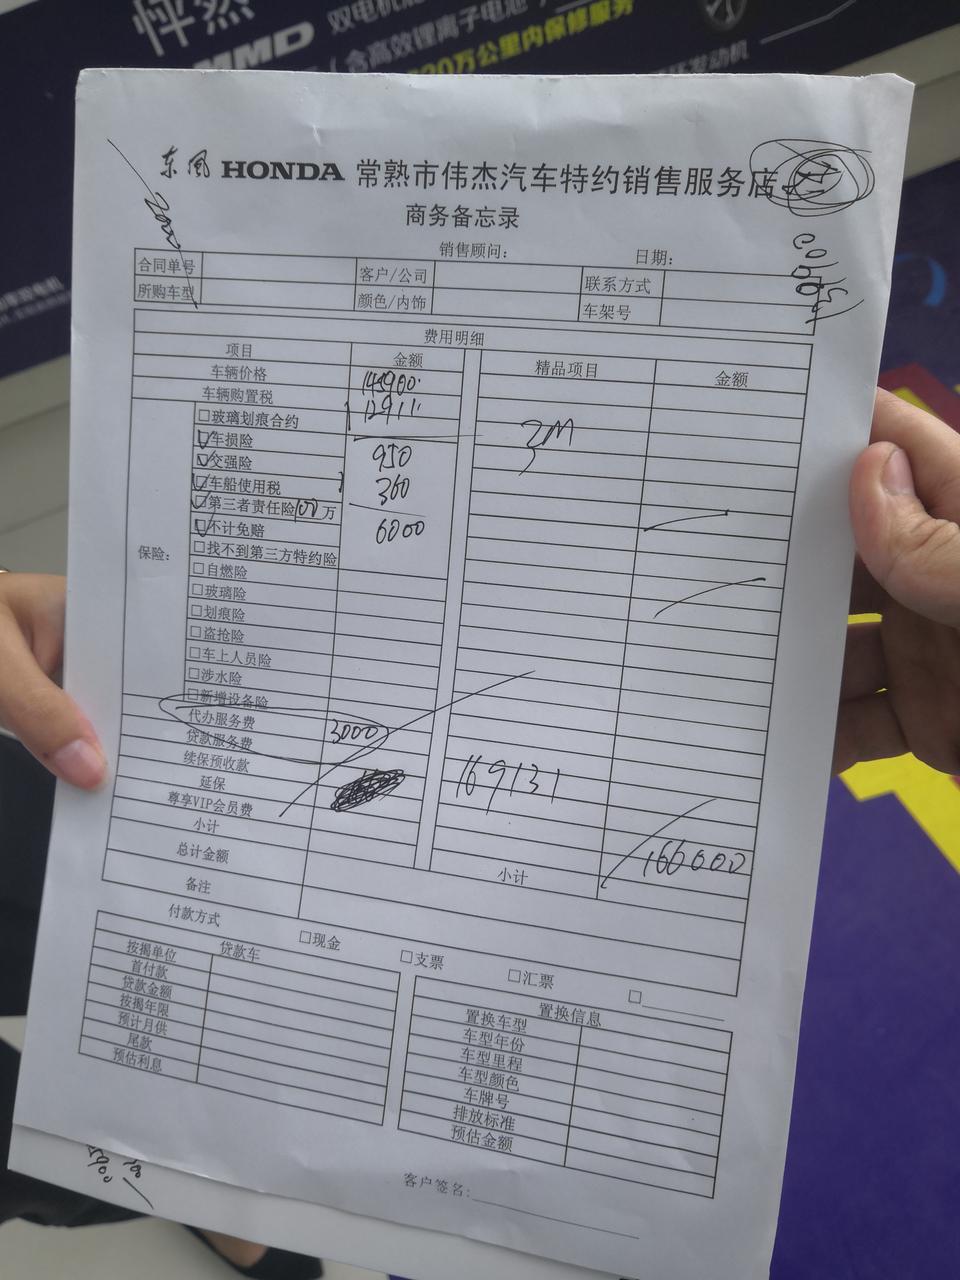 怦然
MMD 双电机
(含高效锂离子电池
20万公里内保修服务
发动机
东风 HONDA 常熟市伟杰汽车特约销售服务店
商务备忘录
销售顾问: 日期:
合同单号 客户/公司 联系方式
所购车型 颜色/内饰 车架号
费用明细
项目 金额 精品项目 金额
车辆价格 145900
车辆购置税 12911
保险:
□玻璃划痕合约
☑车损险 950
☑交强险
☑车船使用税 360
☑第三者责任险100万
☑不计免赔 6000
□找不到第三方特约险
□自燃险
□玻璃险
□划痕险
□盗抢险
□车上人员险
□涉水险
□新增设备险
代办服务费 3000
贷款服务费
续保预收款 169131
延保
尊享VIP会员费
小计 166000
总计金额 小计
备注
付款方式 □现金 □支票 □汇票 □
贷款车 置换信息
按揭单位 置换车型
首付款 车型年份
贷款金额 车型里程
按揭年限 车型颜色
预计月供 车牌号
尾款 排放标准
预估利息 预估金额
客户签名: